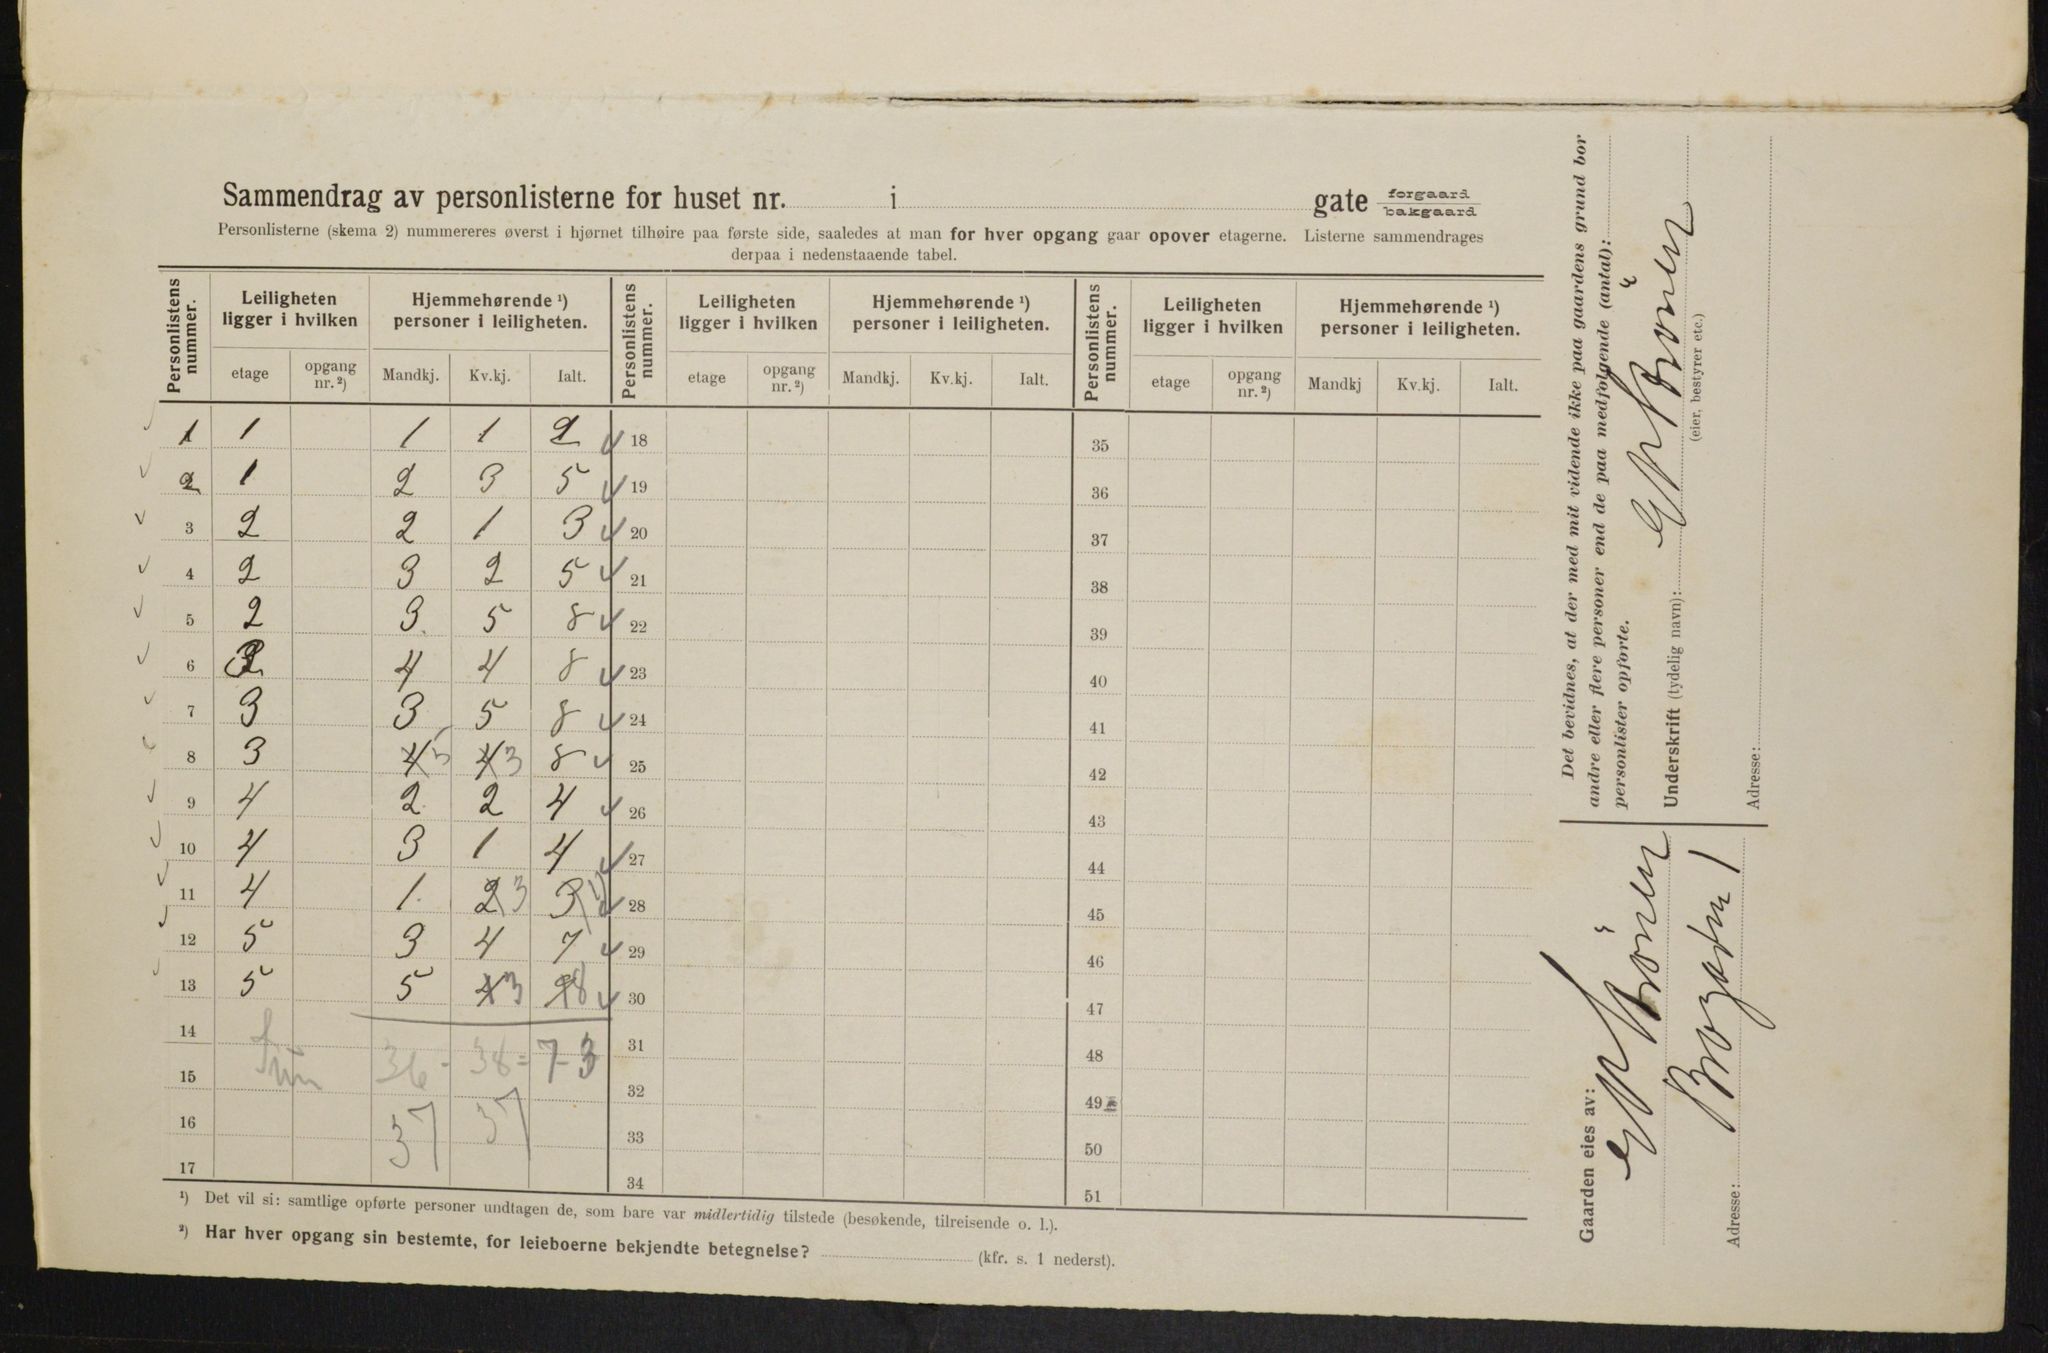 Sammendrag av personlisterne for huset nr. i gate forgaard bakgaard
Personlisterne (skema 2) nummereres øverst i hjørnet tilhøire paa første side, saaledes at man for hver opgang gaar opover etagerne. Listerne sammendrages
derpaa i nedenstaaende tabel.
Personlistens nummer. Leiligheten ligger i hvilken Hjemmehørende ¹) personer i leiligheten. Personlistens nummer. Leiligheten ligger i hvilken Hjemmehørende ¹) personer i leiligheten. Personlistens nummer. Leiligheten ligger i hvilken Hjemmehørende ¹) personer i leiligheten.
etage opgang nr. ²) Mandkj. Kv.kj. Ialt. etage opgang nr. ²) Mandkj. Kv.kj. Ialt. etage opgang nr. ²) Mandkj Kv.kj. Ialt.
1 1 1 1 2 18 35
2 1 2 3 5 19 36
3 2 2 1 3 20 37
4 2 3 2 5 21 38
5 2 3 5 8 22 39
6 3 4 4 8 23 40
7 3 3 5 8 24 41
8 3 4 5 4 3 8 25 42
9 4 2 2 4 26 43
10 4 3 1 4 27 44
11 4 1 2 3 3 28 45
12 5 3 4 7 29 46
13 5 5 4 3 9 8 30 47
14 31 48
15 36 - 38 = 7-3 32 49
16 37 37 33 50
17 34 51
¹) Det vil si: samtlige opførte personer undtagen de, som bare var midlertidig tilstede (besøkende, tilreisende o. l.).
²) Har hver opgang sin bestemte, for leieboerne bekjendte betegnelse? (kfr. s. 1 nederst).
Det bevidnes, at der med mit vidende ikke paa gaardens grund bor
andre eller flere personer end de paa medfølgende (antal):
personlister opførte.
Underskrift (tydelig navn):
(eier, bestyrer etc.)
Adresse:
Gaarden eies av:
Adresse: